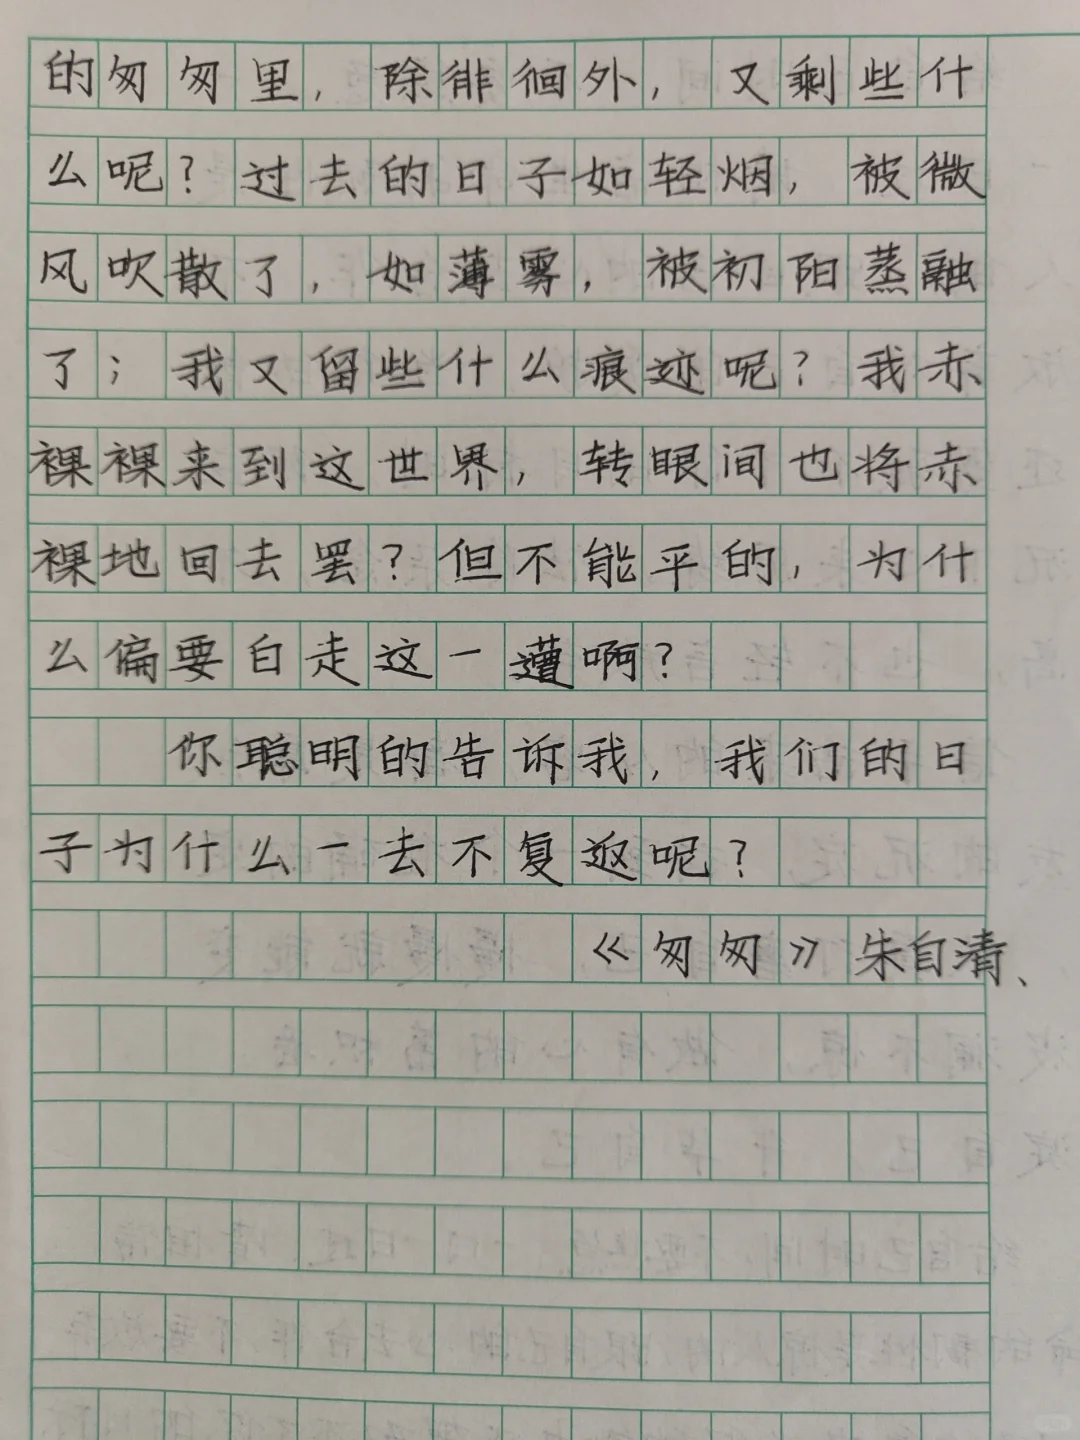 的匆匆里，除徘徊外，又剩些什
么呢？过去的日子如轻烟，被微
风吹散了，如薄雾，被初阳蒸融
了；我又留些什么痕迹呢？我赤
裸裸来到这世界，转眼间也将赤
裸地回去罢？但不能平的，为什
么偏要白走这一遭啊？
你聪明的告诉我，我们的日
子为什么一去不复返呢？
《匆匆》朱自清、